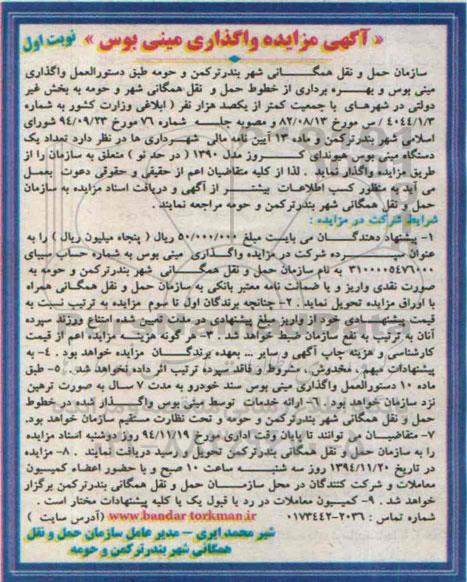 « آگهی مزایده واگذاری مینی بوس » نوبت اول
سازمان حمل و نقل همگـــانی شهر بندرترکمن و حومه طبق دستورالعمل واگذاری
مینی بوس و بهـــره برداری از خطوط حمل و نقل همگانی شهر و حومه به بخش غیر
دولتی در شهرهای با جمعیت کمتر از یکصد هزار نفر ( ابلاغی وزارت کشور به شماره
۴۰۴۴۱/۳ / س مورخ ۸۲/۰۸/۱۳ و مصوبه جلسه شماره ۷۶ مورخ ۹۴/۰۹/۲۳ شورای
اسلامی شهر بندرترکمن و ماده ۱۳ آیین نامه مالی شهرداری ها در نظر دارد تعداد یک
دستگاه مینی بوس هیوندای کـــروز مدل ۱۳۹۰ ( در حد نو ) متعلق به سازمان را از
طریق مزایده واگذار نماید . لذا از کلیه متقاضیان اعم از حقیقی و حقوقی دعوت بعمل
می آید به منظور کسب اطلاعات بیشتـــر از آگهی و دریافت اسناد مزایده به سازمان
حمل و نقل همگانی شهر بندرترکمن و حومه مراجعه نمایند .
شرایط شرکت در مزایده :
۱- پیشنهاد دهندگـــان می بایست مبلغ ۵۰/۰۰۰/۰۰۰ ریال ( پنجاه میلیون ریال ) را به
عنوان سپـــرده شرکت در مزایده واگـــذاری مینی بوس به شماره حساب سیبای
۳۱۰۰۰۰۵۴۷۶۰۰۰ به نام سازمان حمل و نقل همگانی شهر بندرترکمن و حومه به
صورت نقدی واریز و یا ضمانت نامه معتبر بانکی به سازمان حمل و نقل همگانی همراه
با اوراق مزایده تحویل نمایند . ۲- چنانچه برندگان اول تا سوم مزایده به ترتیب نسبت به
قیمت پیشنهـــادی خود از واریز مبلغ پیشنهادی در مدت تعیین شده امتناع ورزند سپرده
آنان به ترتیب به نفع سازمان ضبط خواهد شد . ۳- هر گونه هزینه مزایده اعم از قیمت
کارشناسی و هزینه چاپ آگهی و سایر ... بعهده برندگـــان مزایده خواهد بود . ۴- به
پیشنهادات مبهم ، مخدوش ، مشروط و فاقد سپرده ترتیب اثر داده نخواهد شد . ۵- طبق
ماده ۱۰ دستورالعمل واگذاری مینی بوس سند خودرو به مدت ۷ سال به صورت ترهین
نزد سازمان خواهد بود . ۶- ارائه خدمات توسط مینی بوس واگذار شده در خطوط
حمل و نقل همگانی شهر بندرترکمن و حومه و تحت نظارت مستقیم سازمان خواهد بود.
۷- متقاضیـــان می توانند تا پایان وقت اداری مورخ ۹۴/۱۱/۱۹ روز دوشنبه اسناد مزایده
را به سازمان حمل و نقل همگانی بندرترکمن تحویل و رسید دریافت نمایند . ۸- مزایده
در تاریخ ۱۳۹۴/۱۱/۲۰ روز سه شنبـــه ساعت ۱۰ صبح و با حضور اعضاء کمیسیون
معاملات و شرکت کنندگان در محل سازمـــان حمل و نقل همگانی بندرترکمن برگزار
خواهد شد . ۹- کمیسیون معاملات در رد یا قبول یک یا کلیه پیشنهادات مختار است .
شماره تماس : ۲۰۳۶-۰۱۷۳۴۴۲ www.bandar-torkman.ir (آدرس سایت )
شیر محمد ایری – مدیر عامل سازمان حمل و نقل
همگانی شهر بندرترکمن و حومه